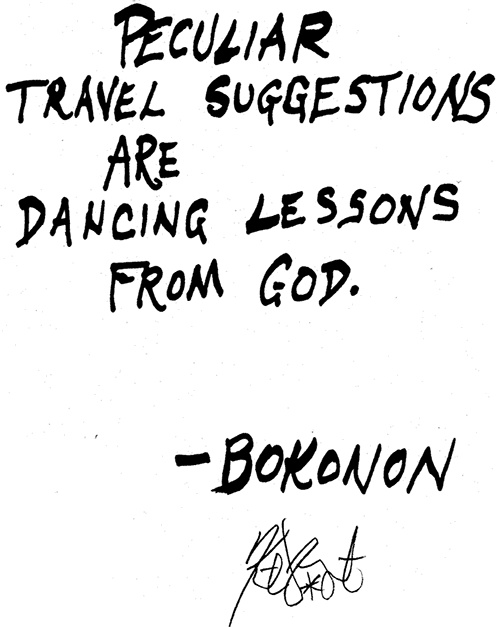 PECULIAR
TRAVEL SUGGESTIONS
ARE
DANCING LESSONS
FROM GOD.
-BOKONON